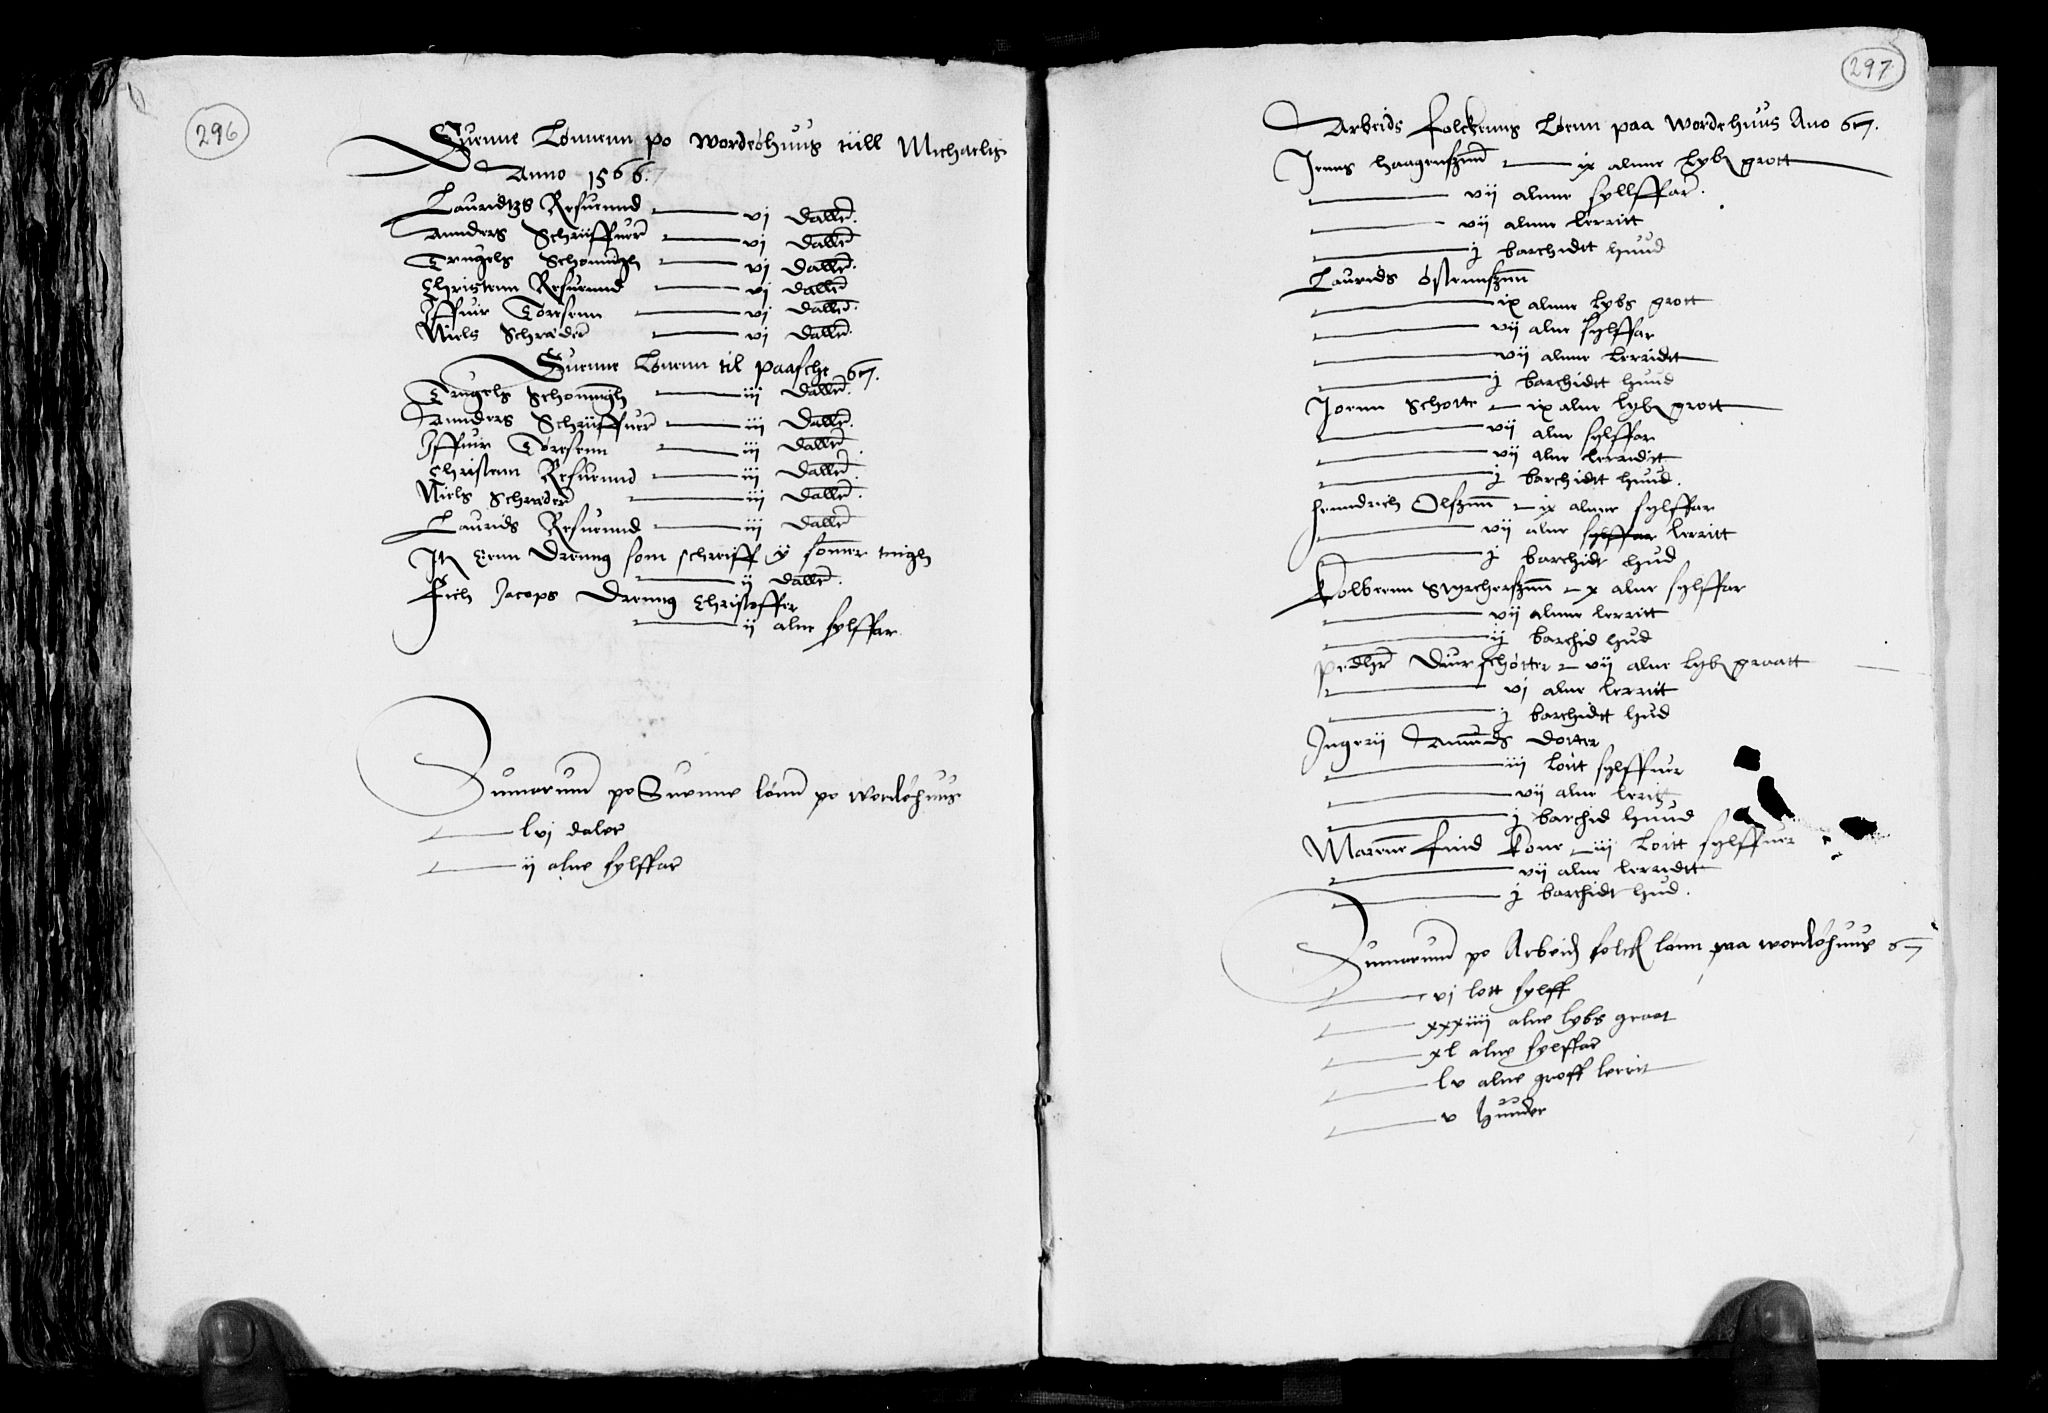 296
Suenne Lønnenn po wordøhuus tiill Michaelis
Anno 1566.
Lauridtzs Resuennd vj daller.
Annders Schriiffuer vj daller
Trugels Schonningh vj daller.
Christenn Resuennd vj daller
Iffuir Toresenn vj daller.
Niels Schræder vj daller.
Suenne Lønenn til paasche 67.
Trugels Schonningh iij daller.
Annders Schriiffuer iij daller.
Iffuir Toresenn iij daller.
Christenn Resuennd iij daller.
Niels Schræder iij daller.
Laurids Resuennd iij daller
Jtt Eenn Drenng som schreiff ij sommer tingh
ij daller.
Fich Jacops Drenng Christoffer
ij alne sylffar
Summarum po Suenne lønn po wordøhuus
lvj daler
ij alne sylffar
297
Arbeids folckenns Løenn paa wordøhuus Ano 67.
Jenns Haagenszenn ix alnne Lybs grott
vij alnne syllffar.
vij alnne lerritt
j barchidtt huud
Laurids Østennszenn
ix alnne Lybs grott
vij alne sylffar
vij alnne lerridtt
j barchidtt huud
Joenn Schotte ix alne lybs grott
vij alne sylffar
vij alne lerriditt
j barchidtt huud.
Henndrich Olszenn ix alnne sylffar
vij alne sylffar lerritt
j barchidt hud
Kolbeenn Syrcherszenn x alne sylffar
vij alnne lerritt
ij barchid hud
pedher Diurschøtter vij alne lybs graatt
vj alne lerritt
j barchidtt hud
Ingerij Amunds dotter
iij loitt sylffuer
vij alne lerit
j barchid huud
Marenne find kone iij Loitt sylffuer
vij alne lerridtt
j barchidt hud.
Summarum po Arbeids folck lønn paa wordøhuus 67
vj lott sylff
xxxiiij alne lybs graat
xl alne sylffar
lv alne groff lerrit
v huuder